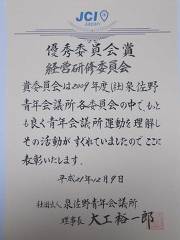 JCI
JAPAN
優秀委員会賞
経営研修委員会
貴委員会は2009年度(社)泉佐野
青年会議所各委員会の中で、もっと
も良く青年会議所運動を理解し
その活動がすぐれていましたのでここに
表彰いたします。
平成21年12月9日
社団法人 泉佐野青年会議所
理事長 大工裕一郎